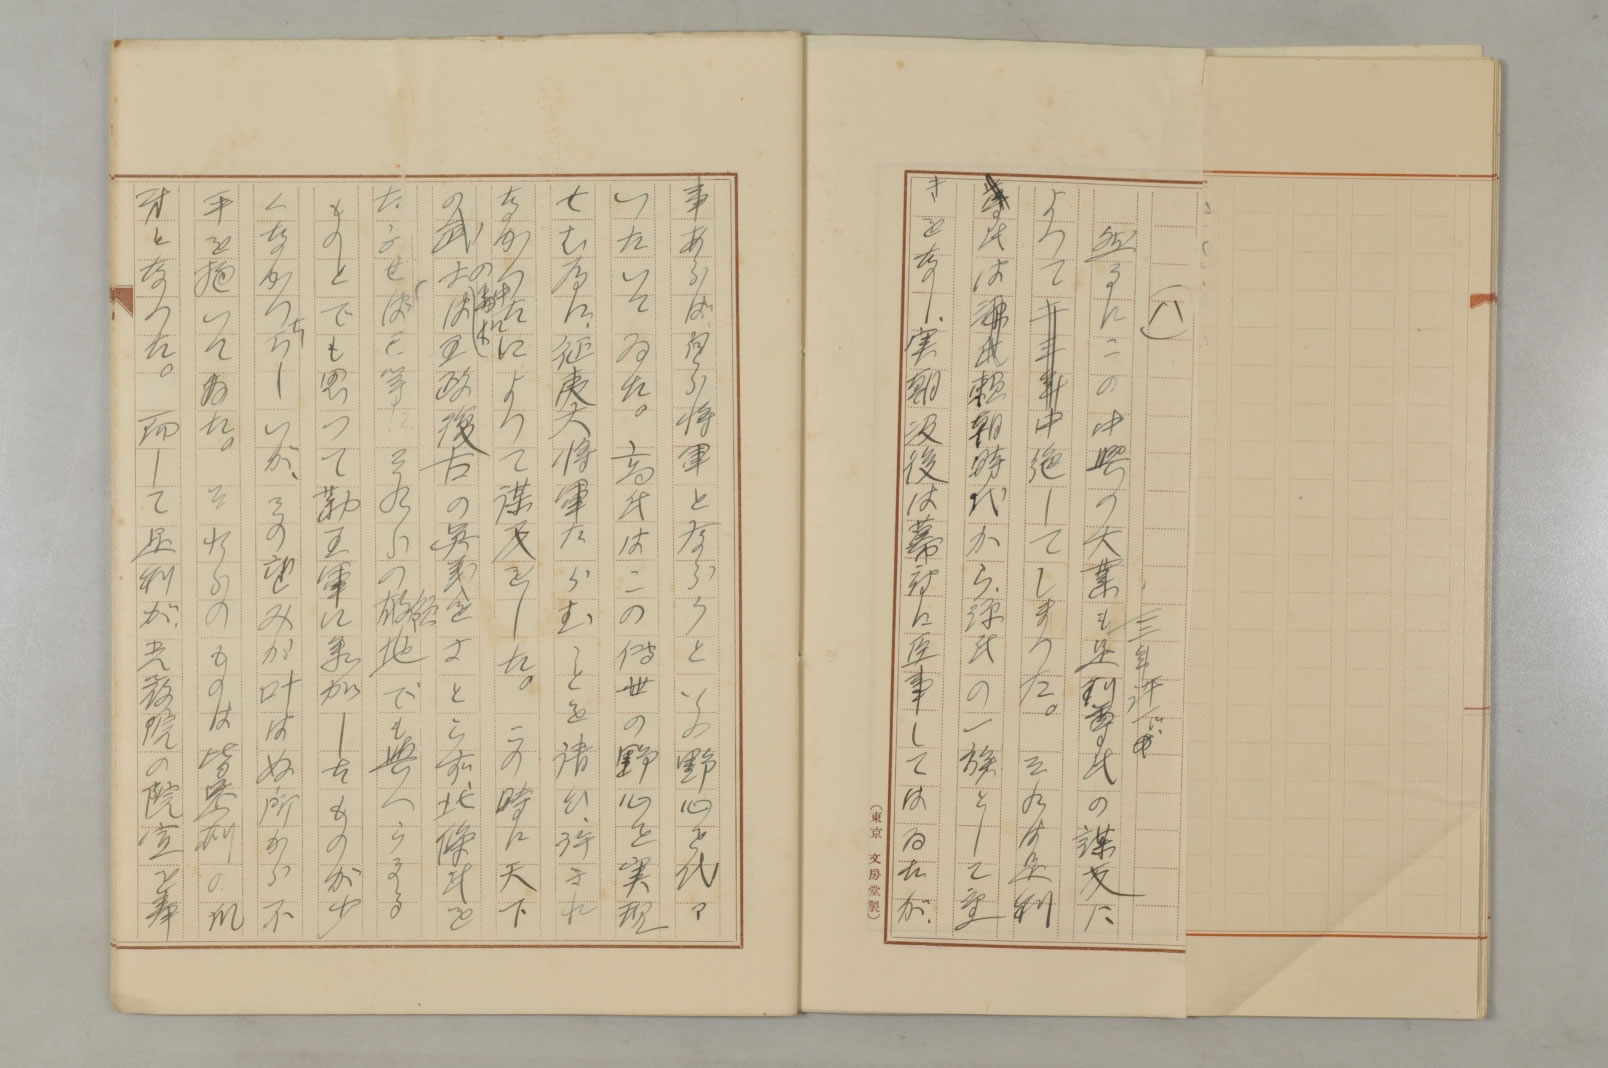 (八)
然るにこの中興の大業も足利尊氏の謀反に
よつて三年許で中絶してしまつた。それは足利
氏は頼朝時代から、源氏の一族として重
きをなし、実朝歿後は幕府に臣事してはゐたが、
(東京 文房堂製)
事あらば自ら将軍とならうといふ野心を代々
いたいてゐた。高氏はこの伝世の野心を実現
せむ為に、征夷大将軍たらむことを請ひ、許され
なかつたによつて謀反をした。この時に天下
の武士の中には王政復古の異義をさとらず、北條氏を
たふせばそれらの領地でも與へらるる
ものとでも思つて勤王軍に参加したものが少
くなかつたらしいが、その望みが叶はぬ所から不
平を抱いてゐた。それらのものは皆足利の肌
方となつた。而して足利が、光厳院の院宣を奉